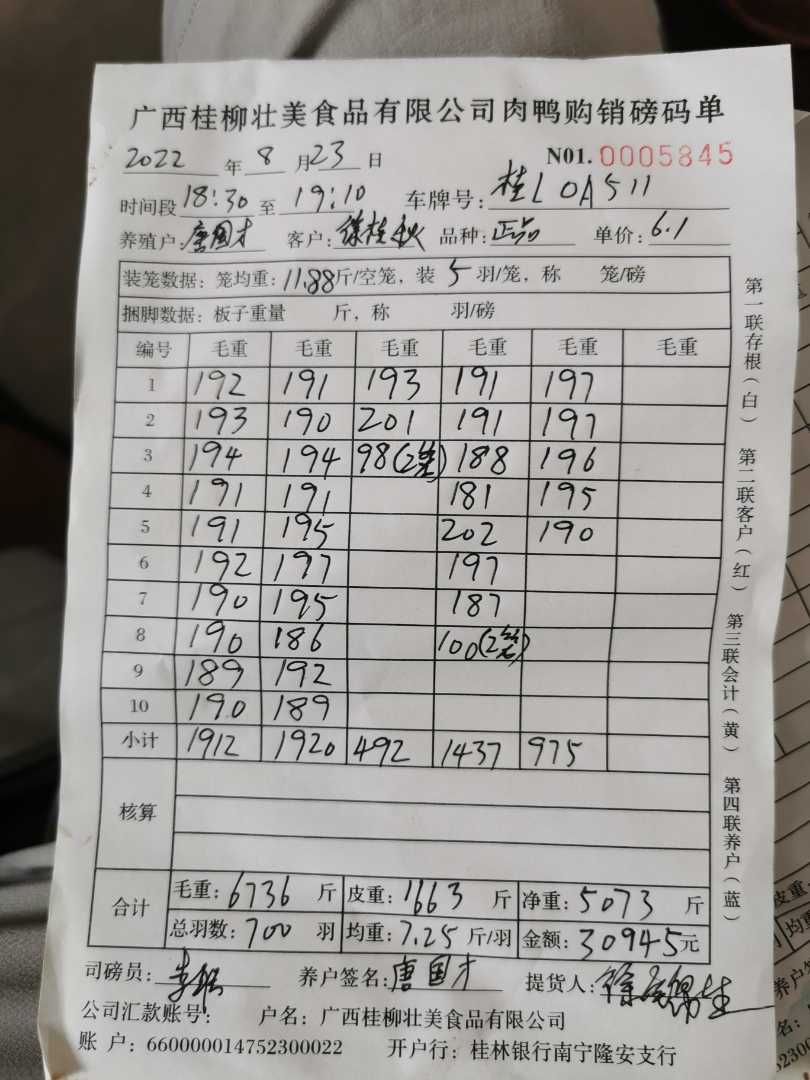 广西桂柳壮美食品有限公司肉鸭购销磅码单
2022 年 8 月 23 日 N01. 0005845
时间段 18:30 至 19:10 车牌号: 桂L0A511
养殖户: 唐国才 客户: 徐桂秋 品种: 正品 单价: 6.1
装笼数据: 笼均重: 11.88 斤/空笼, 装 5 羽/笼, 称 笼/磅
捆脚数据: 板子重量 斤, 称 羽/磅
编号 毛重 毛重 毛重 毛重 毛重 毛重
1 192 191 193 191 197
2 193 190 201 191 197
3 194 194 98(2笼) 188 196
4 191 191 181 195
5 191 195 202 190
6 192 197 197
7 190 195 187
8 190 186 100(2笼)
9 189 192
10 190 189
小计 1912 1920 492 1437 975
核算
合计 毛重: 6736 斤 皮重: 1663 斤 净重: 5073 斤
总羽数: 700 羽 均重: 7.25 斤/羽 金额: 30945 元
司磅员: 养户签名: 唐国才 提货人:
公司汇款账号: 户名: 广西桂柳壮美食品有限公司
账 户: 660000014752300022 开户行: 桂林银行南宁隆安支行
第一联存根(白) 第二联客户(红) 第三联会计(黄) 第四联养户(蓝)
皮重:
均重
养户签
名: